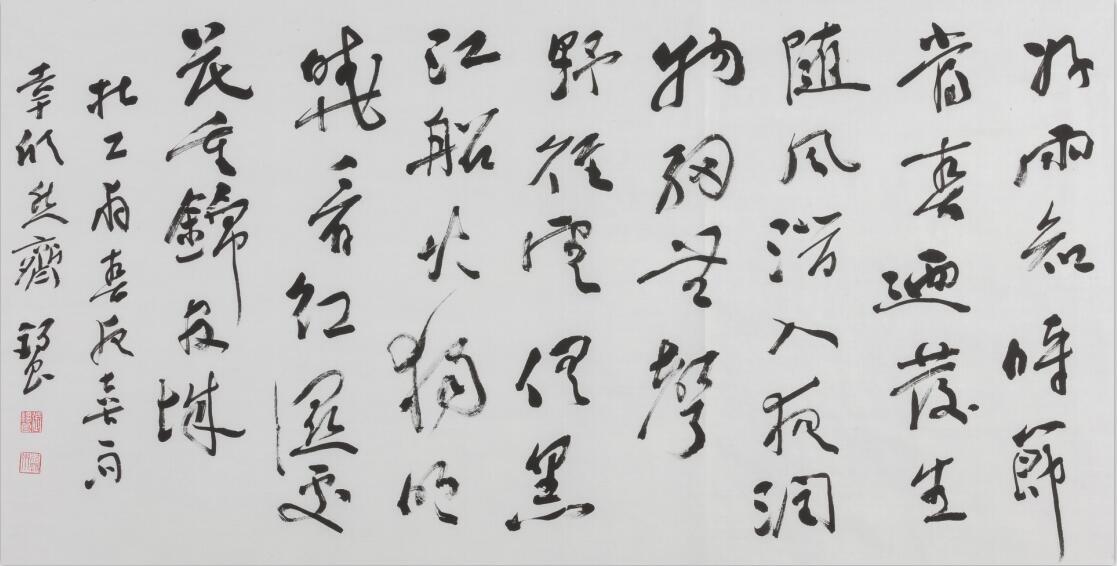 好雨知時節
當春迺發生
隨風潛入夜潤
物細無聲
野徑雲俱黑
江船火獨明
曉看紅濕處
花重錦官城
杜工部春夜喜雨
欣然齋